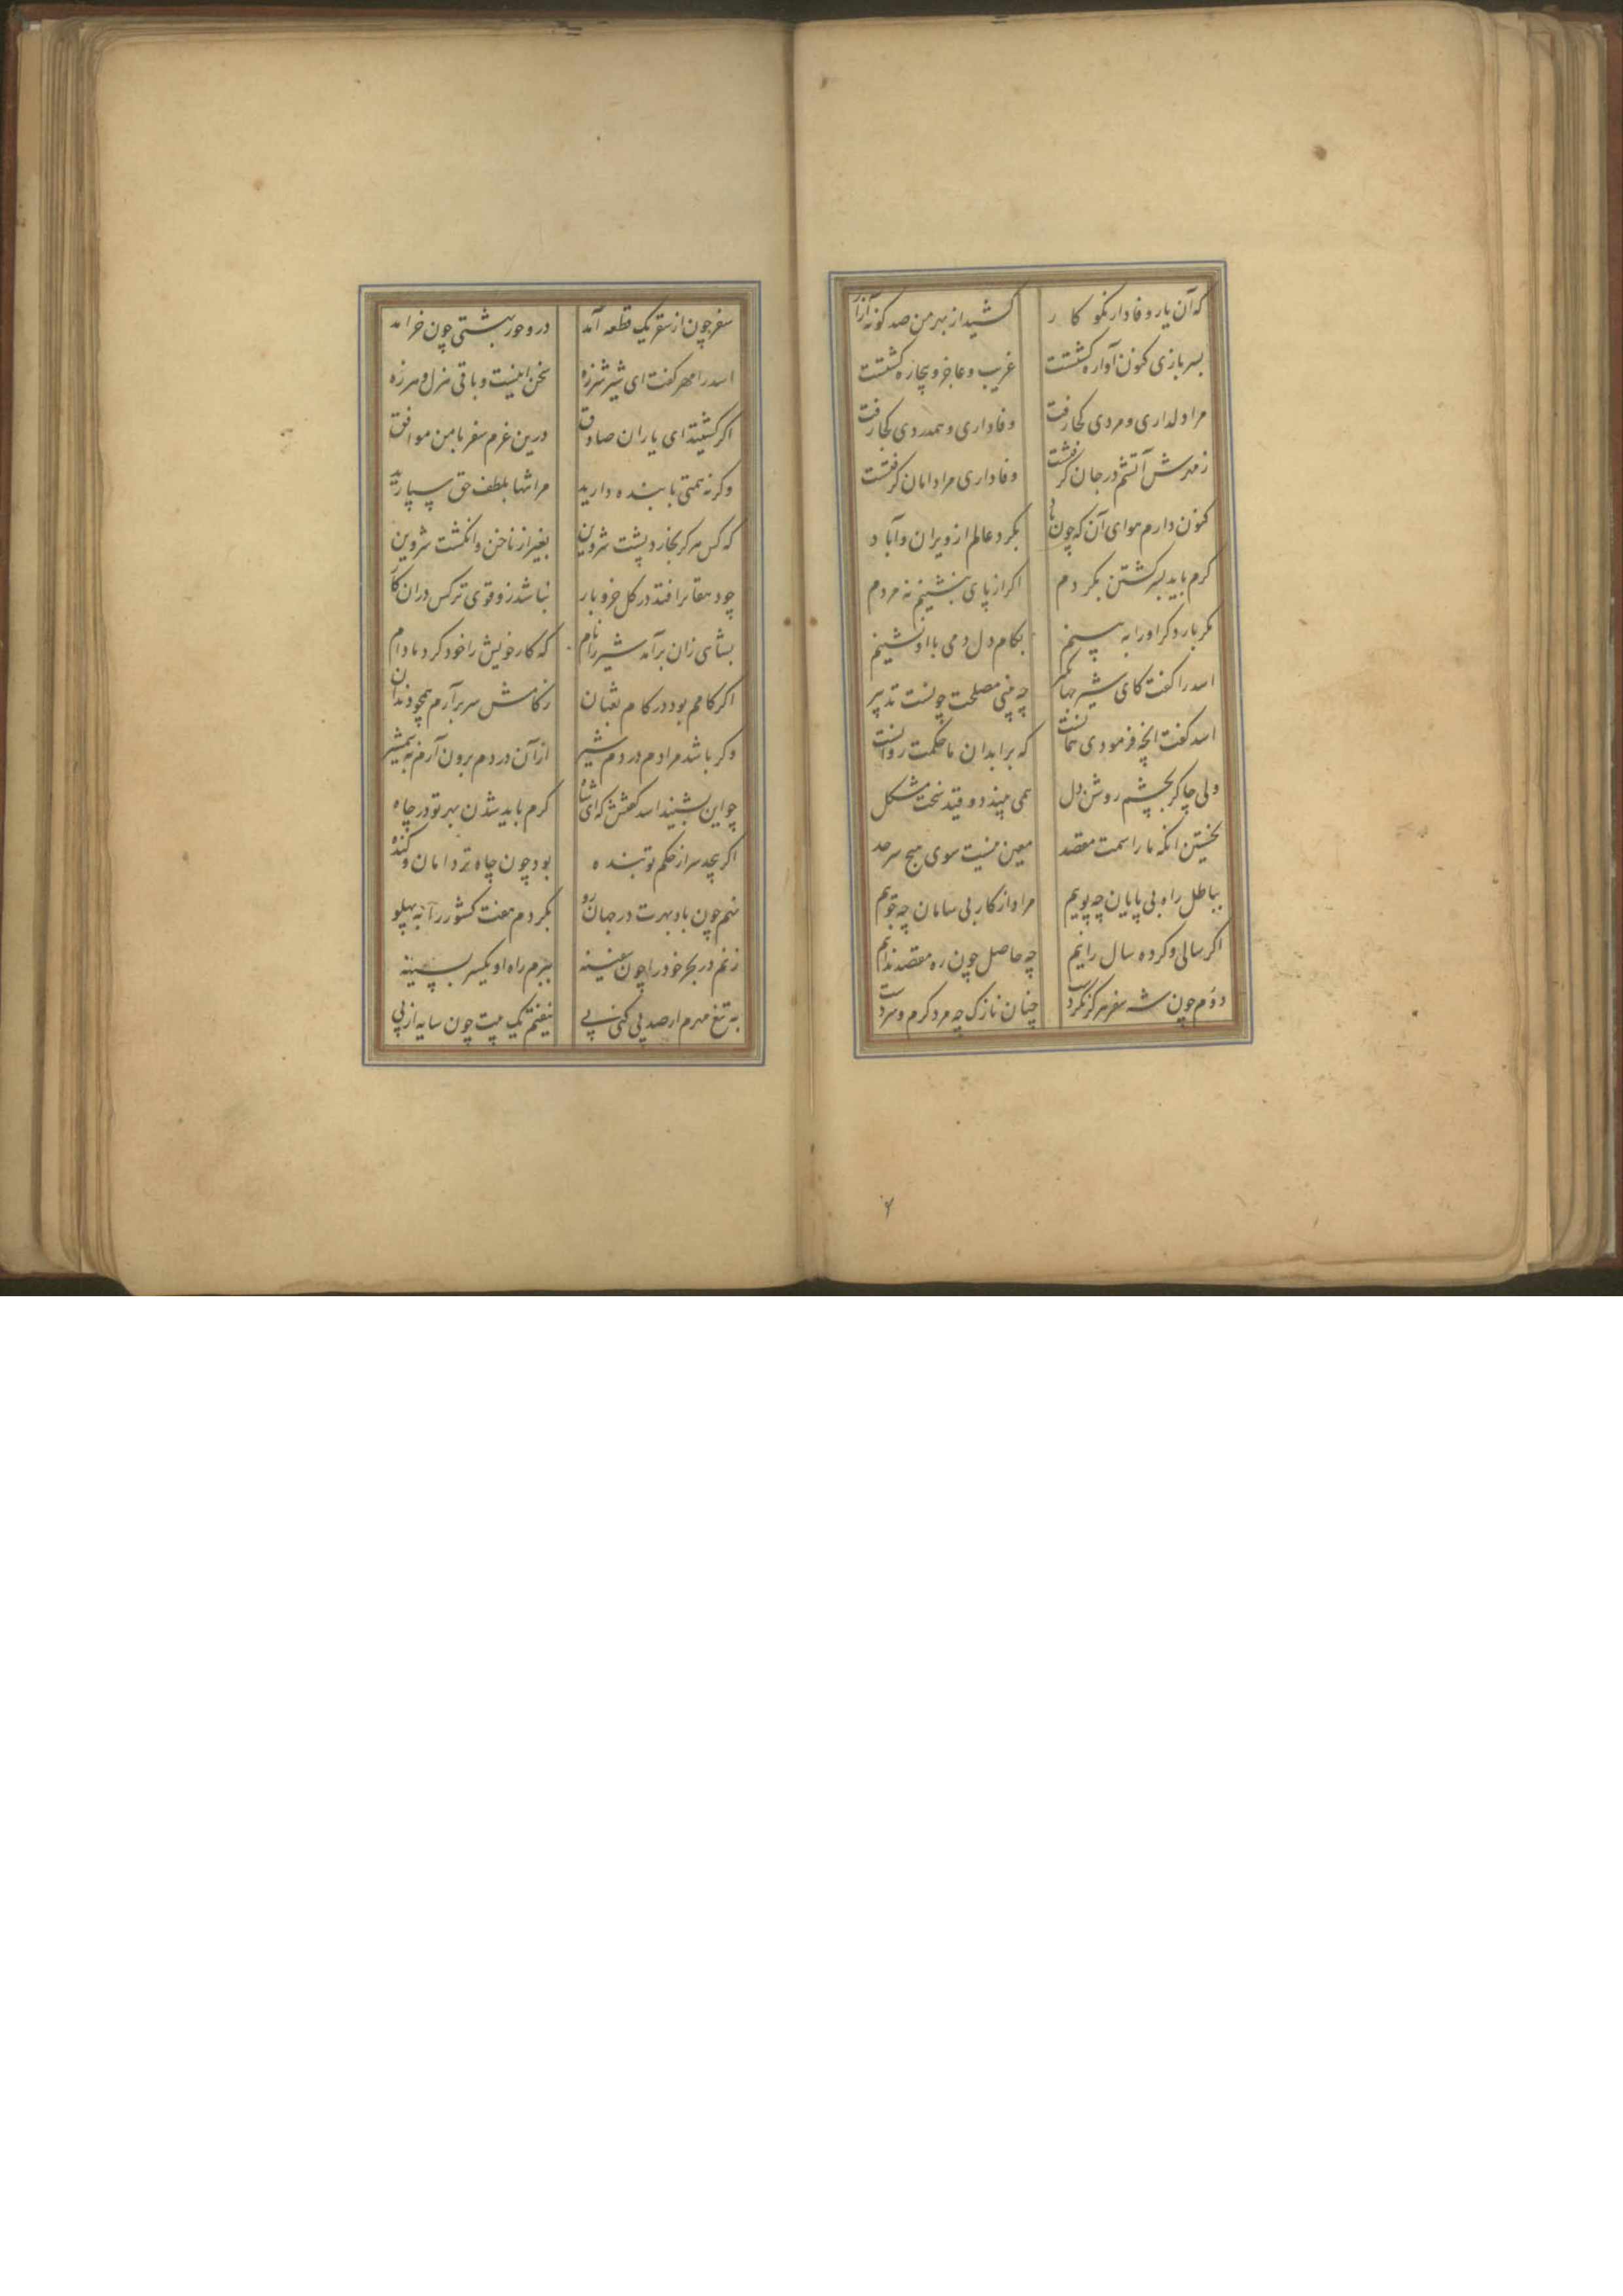 که آن یار وفادار نکو کار
کشید از بهر من صد کونه آزار
بسر بازی کنون آواره کشتست
غریب و عاجز و بیچاره کشتست
مرا دلداری و مردی کجا رفت
وفاداری و همدردی کجا رفت
ز مهرش آتشم در جان کرفتست
وفاداری مرا دامان کرفتست
کنون دارم هوای آن که چون باد
بکرد عالم از ویران و آباد
کرم باید بسر کشتن بکردم
اکر از پای بنشینم نه مردم
مکر بار دکر او را به بینم
بکام دل دمی با او نشینم
اسد را کفت کای شیر جهانکیر
چه بینی مصلحت چونست تدبیر
اسد کفت انچه فرمودی همانست
که بر ابدان ما حکمت روانست
ولی چاکر بچشم روشن دل
همی بیند دو قید سخت مشکل
نخستین انکه ما را سمت مقصد
معین نیست سوی هیچ سرحد
بباطل راه بی پایان چه پوییم
مراد از کار بی سامان چه جوییم
اکر سالی و کر ده سال رانیم
چه حاصل چون ره مقصد ندانیم
دوم چون شه سفر هرکز نکردست
چنان نازک چه مرد کرم و سردست
سفر چون از سقر یک قطعه آمد
درو حور بهشتی چون خرامد
اسد را مهر کفت ای شیر شرزه
سخن اینست و باقی هزل و هرزه
اکر کشتید ای یاران صادق
درین عزم سفر با من موافق
وکرنه همتی با بنده دارید
مرا تنها بلطف حق سپارید
که کس هرکز نخارد پشت شروین
بغیر از ناخن و انکشت شروین
چو دهقانرا فتد در کل خر و بار
نباشد زو قوی تر کس دران کار
بشاهی زان برآمد شیر را نام
که کار خویش را خود کرد مادام
اکر کامم بود در کام ثعبان
ز کامش سر برآرم همچو دندان
وکر باشد مرادم در دم شیر
از آن در دم برون آرم به شمشیر
چو این بشنید اسد کفتش که ای شاه
کرم باید شدن بهر تو در چاه
اکر پیچد سر از حکم تو بنده
بود چون چاه تر دامان و کنده
منم چون باد بهرت در جهان رو
بکردم هفت کشور را به پهلو
زنم در بحر خود را چون سفینه
ببرم راه او یکسر بسینه
به تیغ مهرم ار صد پی کنی پی
نیفتم یک پیت چون سایه از پی